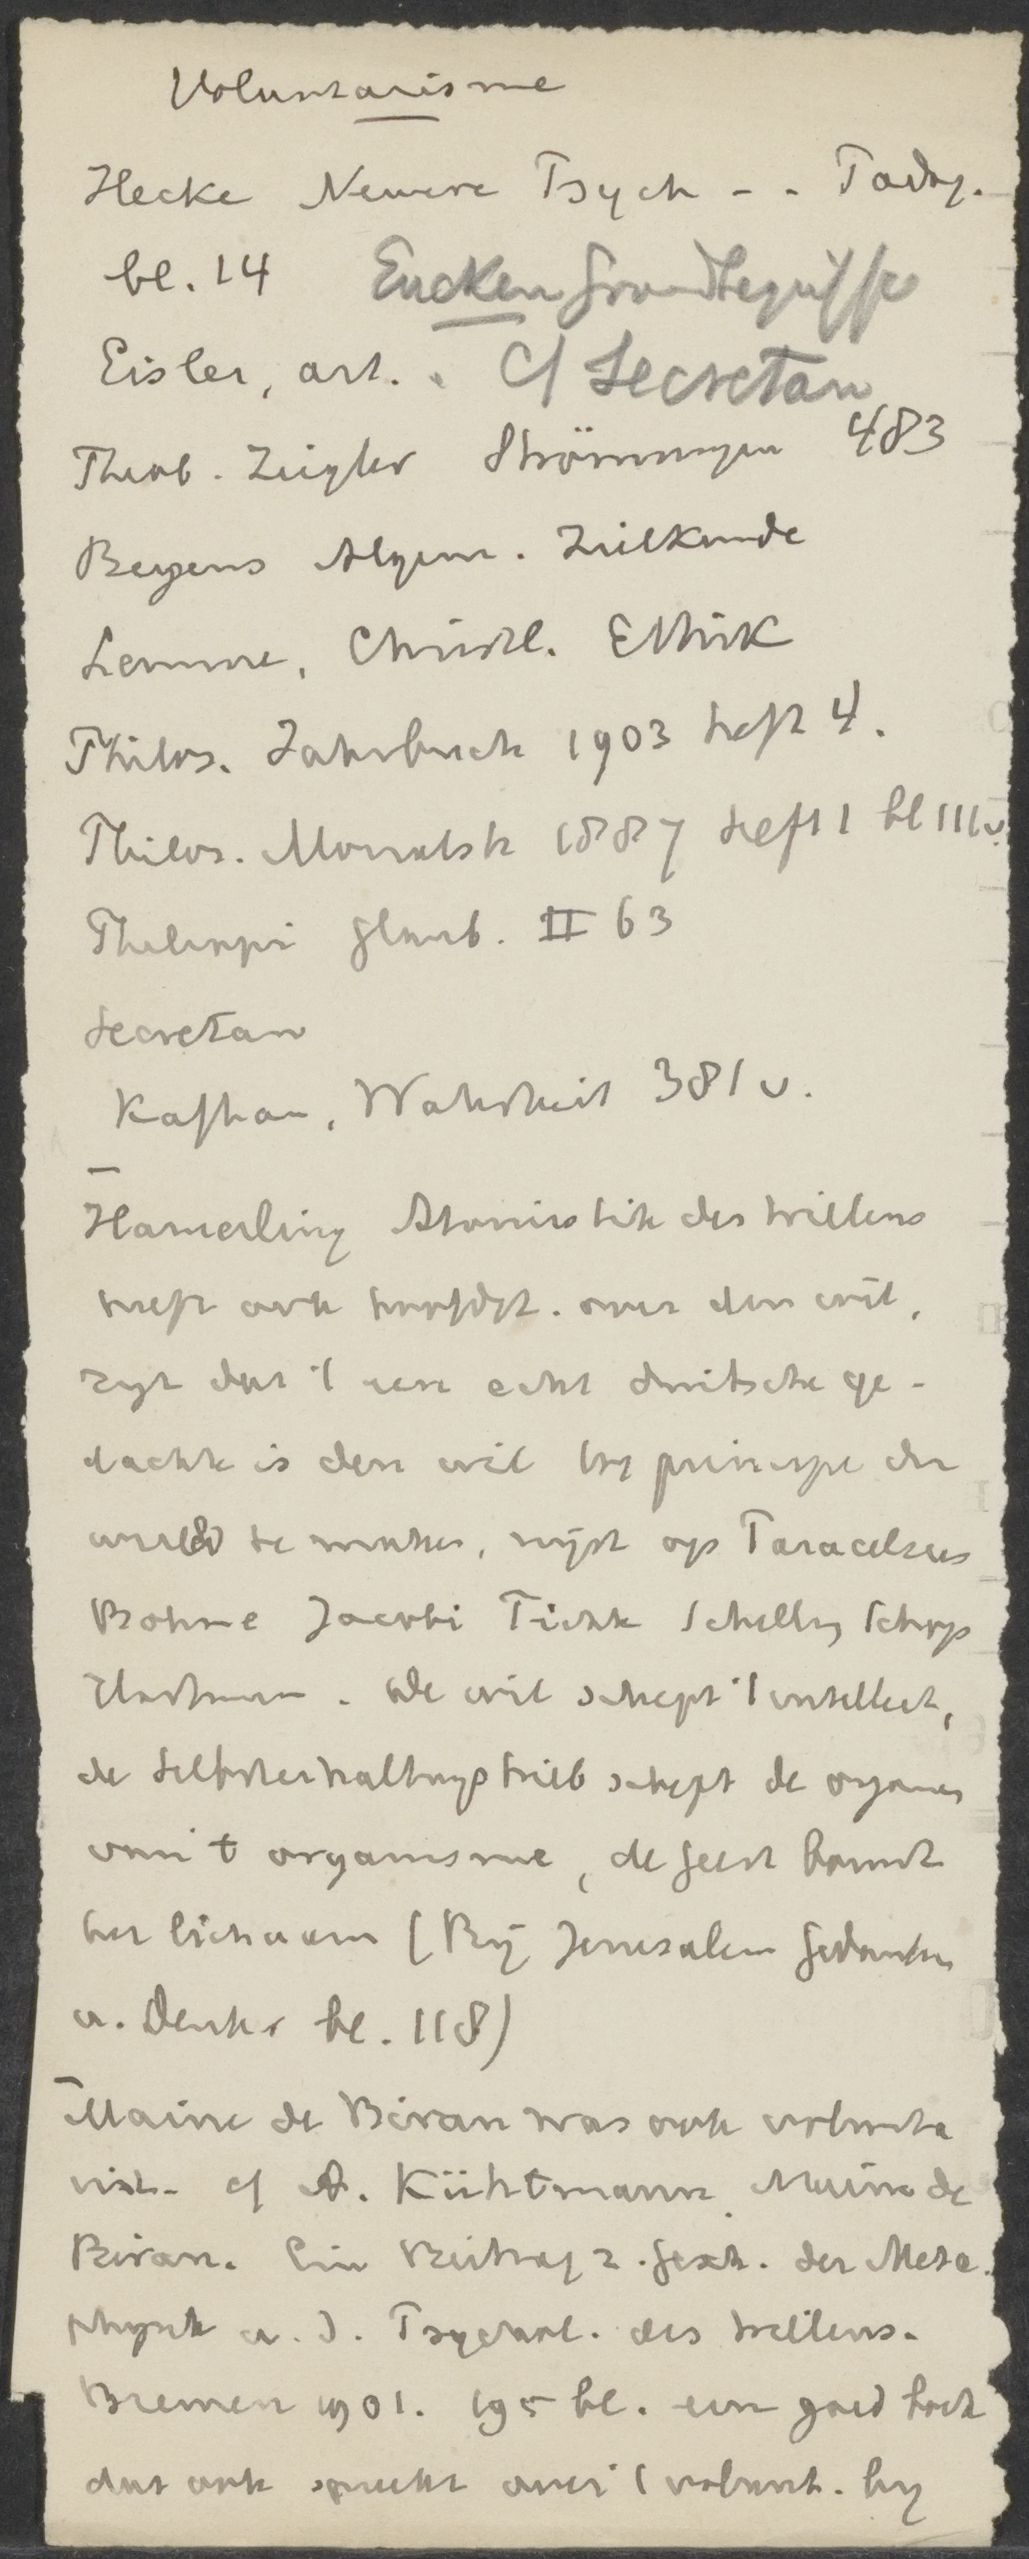 Voluntarisme
Hecke Neuere Psych - - Pädag.
bl. 14 Eucken Grundbegriffe
Eisler, art. . Cf Secretan
Theob. Ziegler Strömungen 483
Beysens Algem. Zielkunde
Lemme, Christl. Ethik
Philos. Jahrbuch 1903 heft 4.
Philos. Monatsh 1887 Heft 1 bl 111 v.
Philippi Glaub. II 63
Secretan
Kaftan, Wahrheit 381 v.
Hamerling Atomistik des Willens
heeft ook hoofdst. over den wil,
zegt dat 't een echt duitsche ge-
dachte is den wil tot principe der
wereld te maken, wijst op Paracelsus
Böhme Jacobi Fichte Schelling Schop
Hartmann. De wil schept 't intellect,
de Selbsterhaltungstrieb schept de organen
van 't organisme, de geest bouwt
het lichaam (Bij Jerusalem Gedanken
u. Denker bl. 118)
Maine de Biran was ook volunta
rist. cf A. Kühtmann Maine de
Biran. Ein Beitrag z. Gesch. der Meta.
physik u. d. Psychol. des Willens.
Bremen 1901. 195 bl. een goed boek
dat ook spreekt over 't volunt. bij